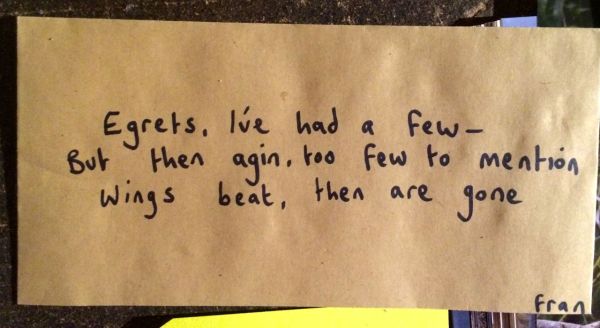 Egrets, I've had a few–
But then agin, too few to mention
Wings beat, then are gone
Fran